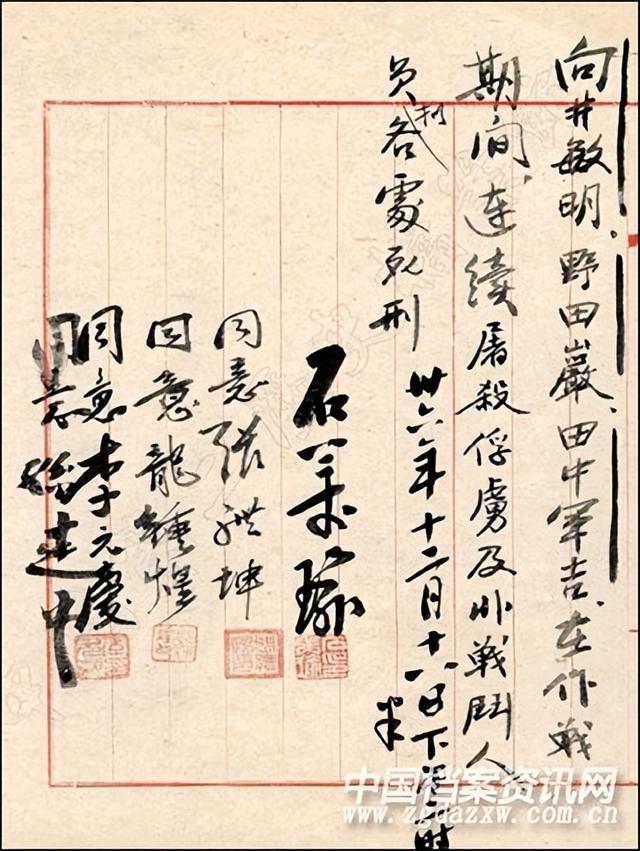 向井敏明、野田巖、田中軍吉、在作戰
期间、连續屠殺俘虜及非戰鬪人
员各處死刑
卅六年十二月十六日下
石美瑜
同意張體坤
同意龍鍾煌
同意李元慶
同意孫建中
中国档案资讯网
www.zgdazxw.com.cn